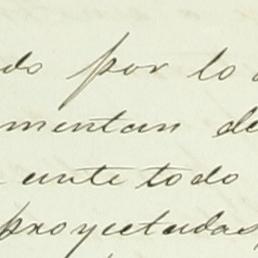 do por lo
mentan de
ante todo
proyectadas,